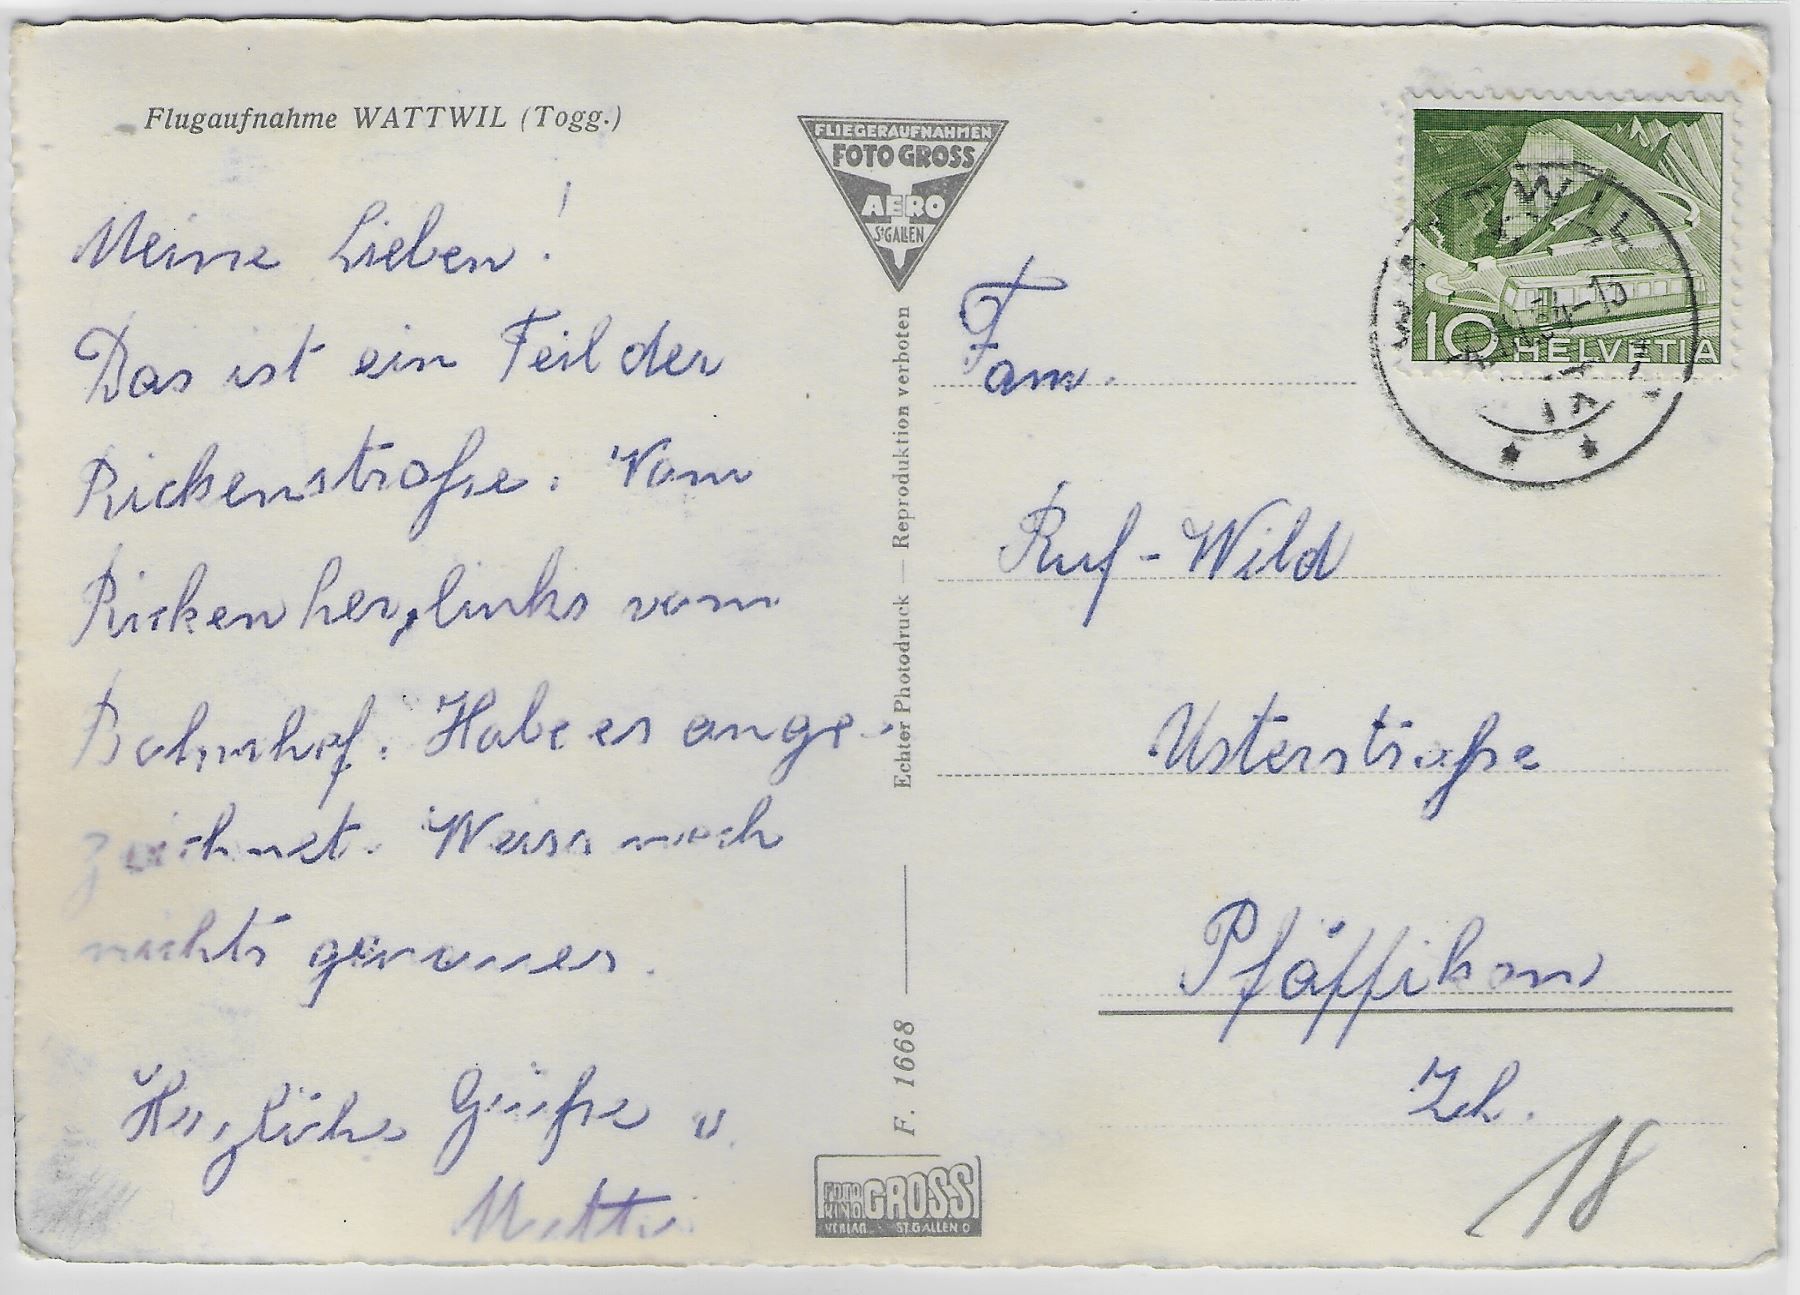 Flugaufnahme WATTWIL (Togg.)
Meine Lieben!
Das ist ein Teil der
Rickenstraße. Vom
Ricken her, links vom
Bahnhof. Habe es ange-
zeichnet. Weiss noch
nichts genaues.
Herzliche Grüße u.
FLIEGERAUFNAHMEN
FOTO GROSS
AERO
ST GALLEN
Echter Photodruck — Reproduktion verboten
F. 1668
FOTO KINO GROSS
VERLAG ST. GALLEN O
10 HELVETIA
WATTWIL
Fam.
Ruf-Wild
Usterstraße
Pfäffikon
Zh.
18